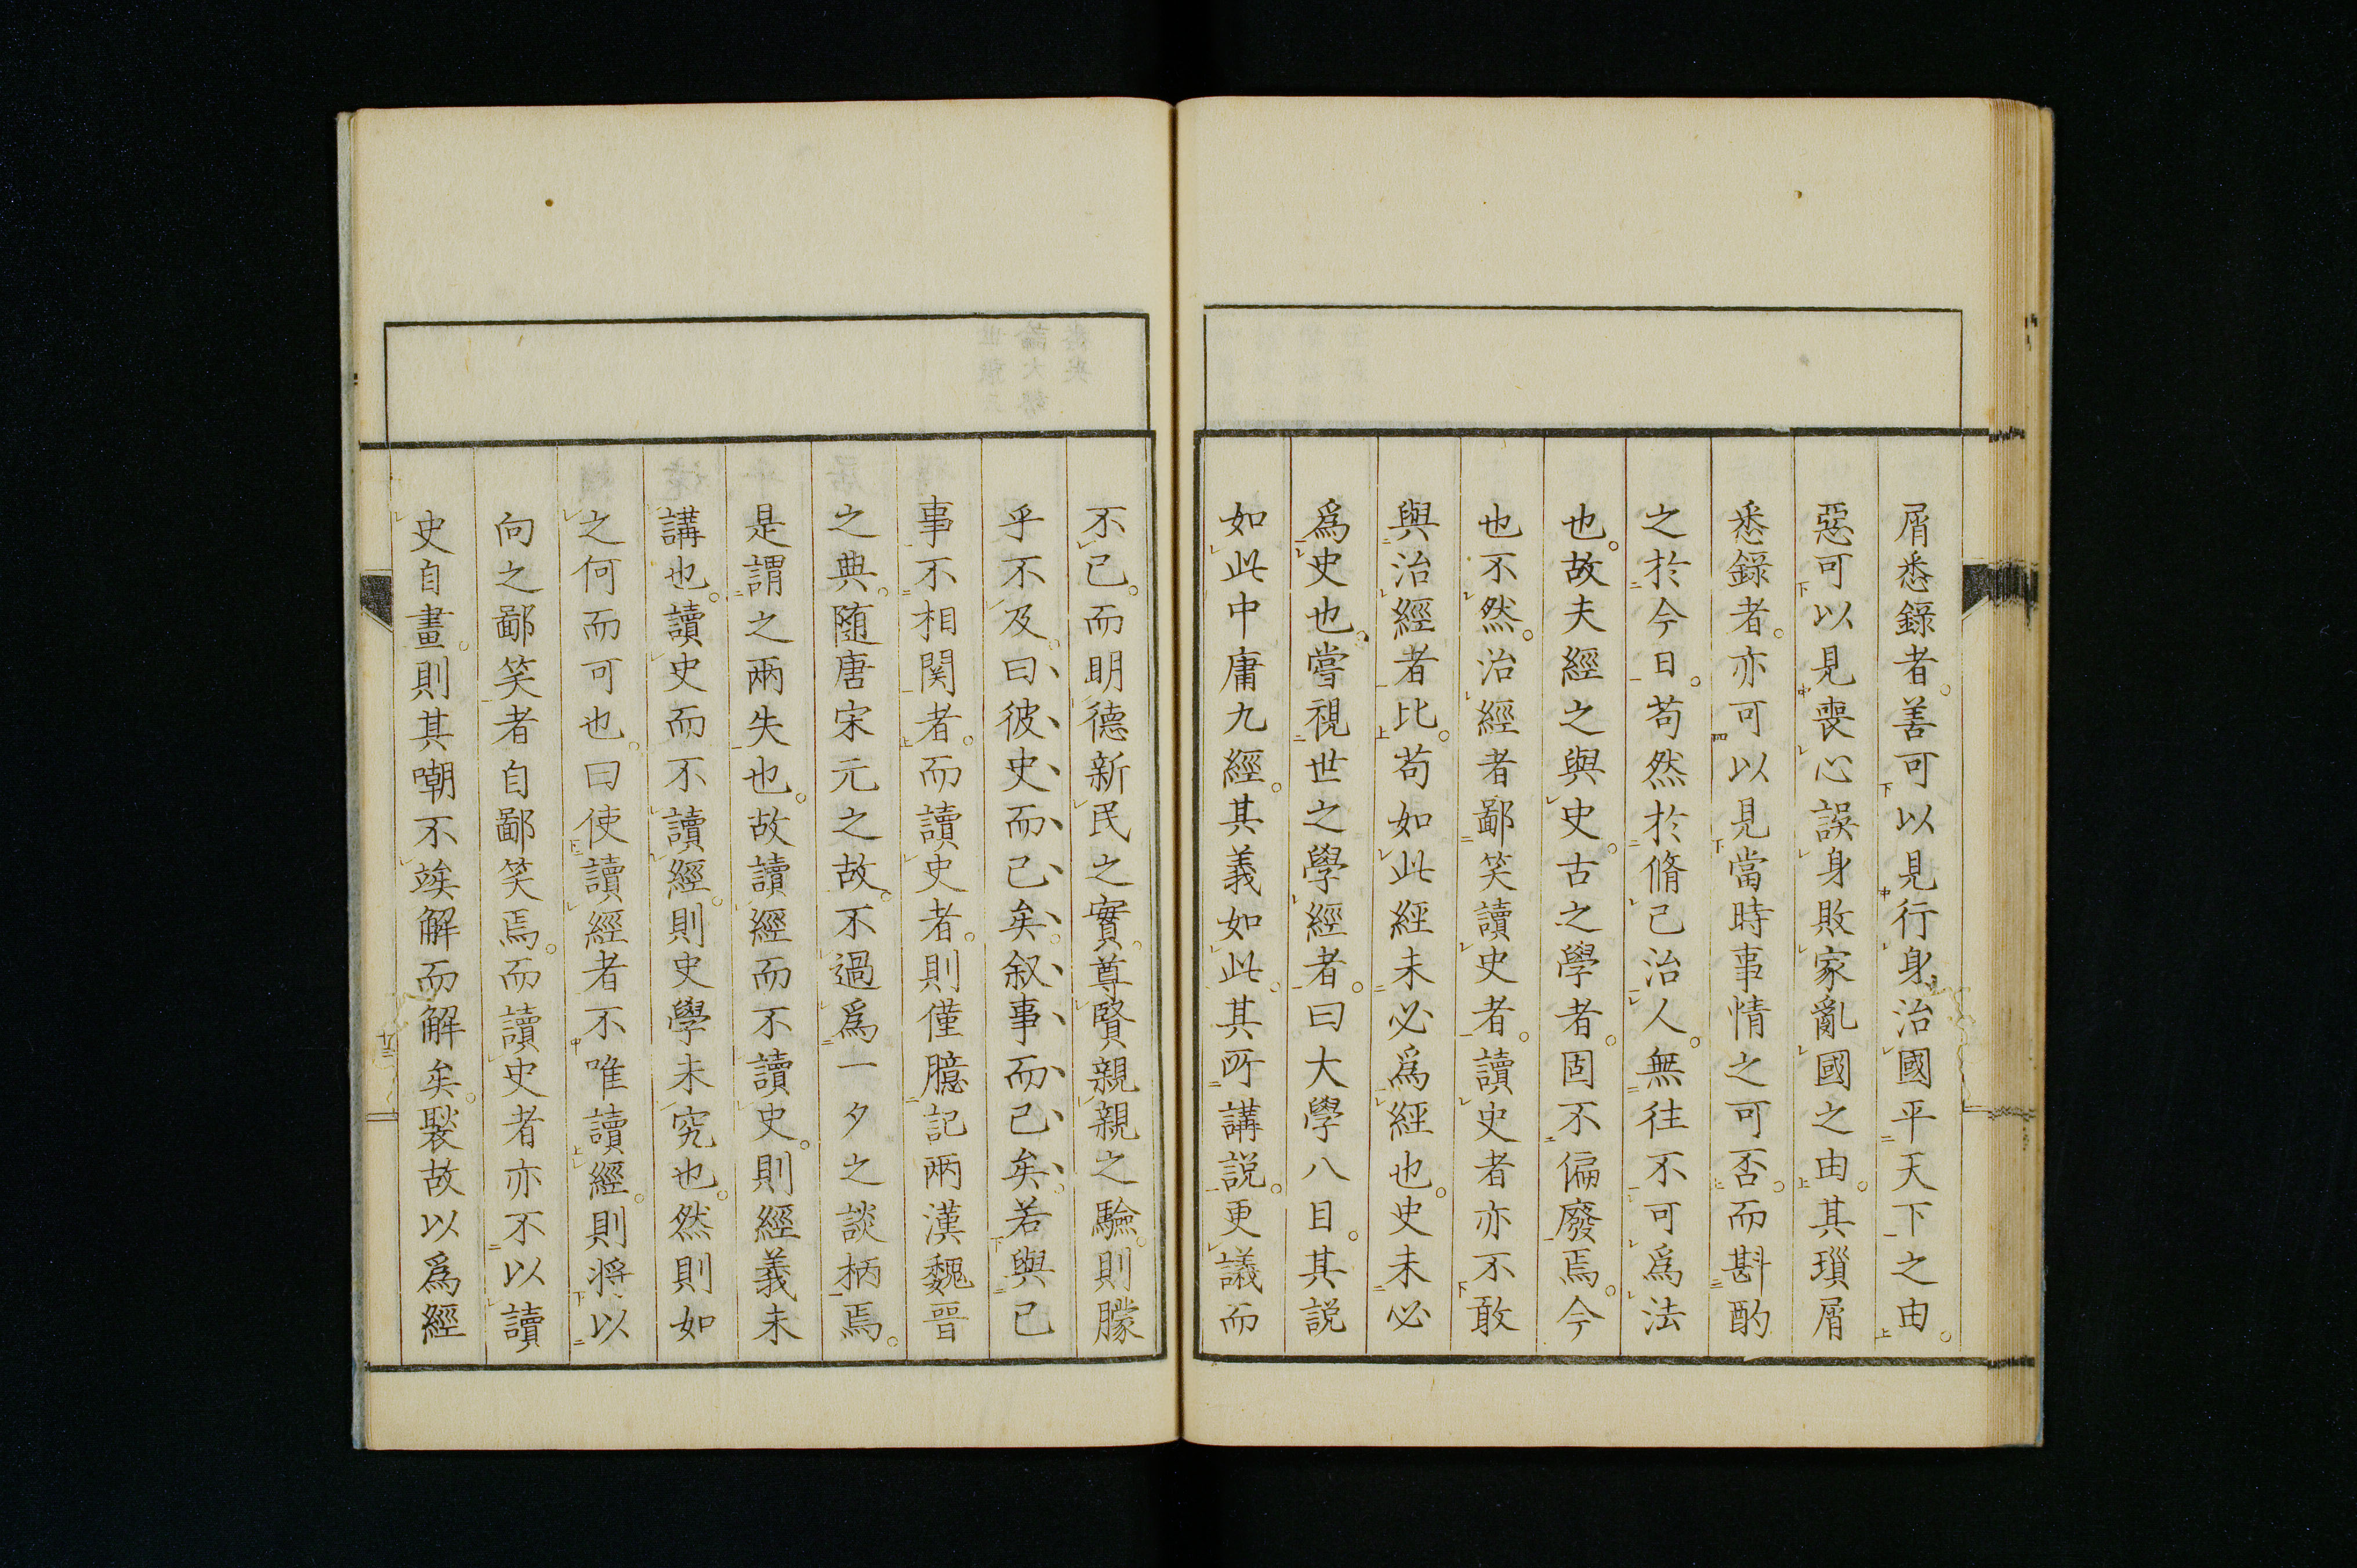 屑悉錄者。善可以見行身治國平天下之由。
惡可以見喪心誤身敗家亂國之由。其瑣屑
悉錄者。亦可以見當時事情之可否。而斟酌
之於今日。苟然於脩己治人。無往不可爲法
也。故夫經之與史。古之學者。固不偏廢焉。今
也不然。治經者鄙笑讀史者。讀史者亦不敢
與治經者比。苟如此經未必爲經也。史未必
爲史也。嘗視世之學經者。曰大學八目。其説
如此中庸九經。其義如此。其所講説。更議而
不已。而明德新民之實。尊賢親親之驗。則朦
乎不及。曰彼史而已矣。叙事而已矣。若與己
事不相関者。而讀史者。則僅臆記兩漢魏晉
之典。随唐宋元之故。不過爲一夕之談柄焉。
是謂之兩失也。故讀經而不讀史。則經義未
講也。讀史而不讀經。則史學未究也。然則如
之何而可也。曰使讀經者不唯讀經。則將以
向之鄙笑者自鄙笑焉。而讀史者亦不以讀
史自畫。則其嘲不竢解而解矣。褧故以爲經
廿三